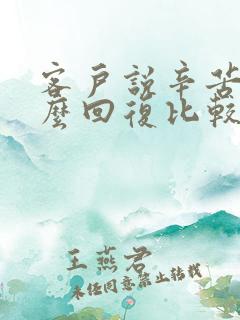 客戶說辛苦
麼回復比較
王燕君
未經同意禁止轉載